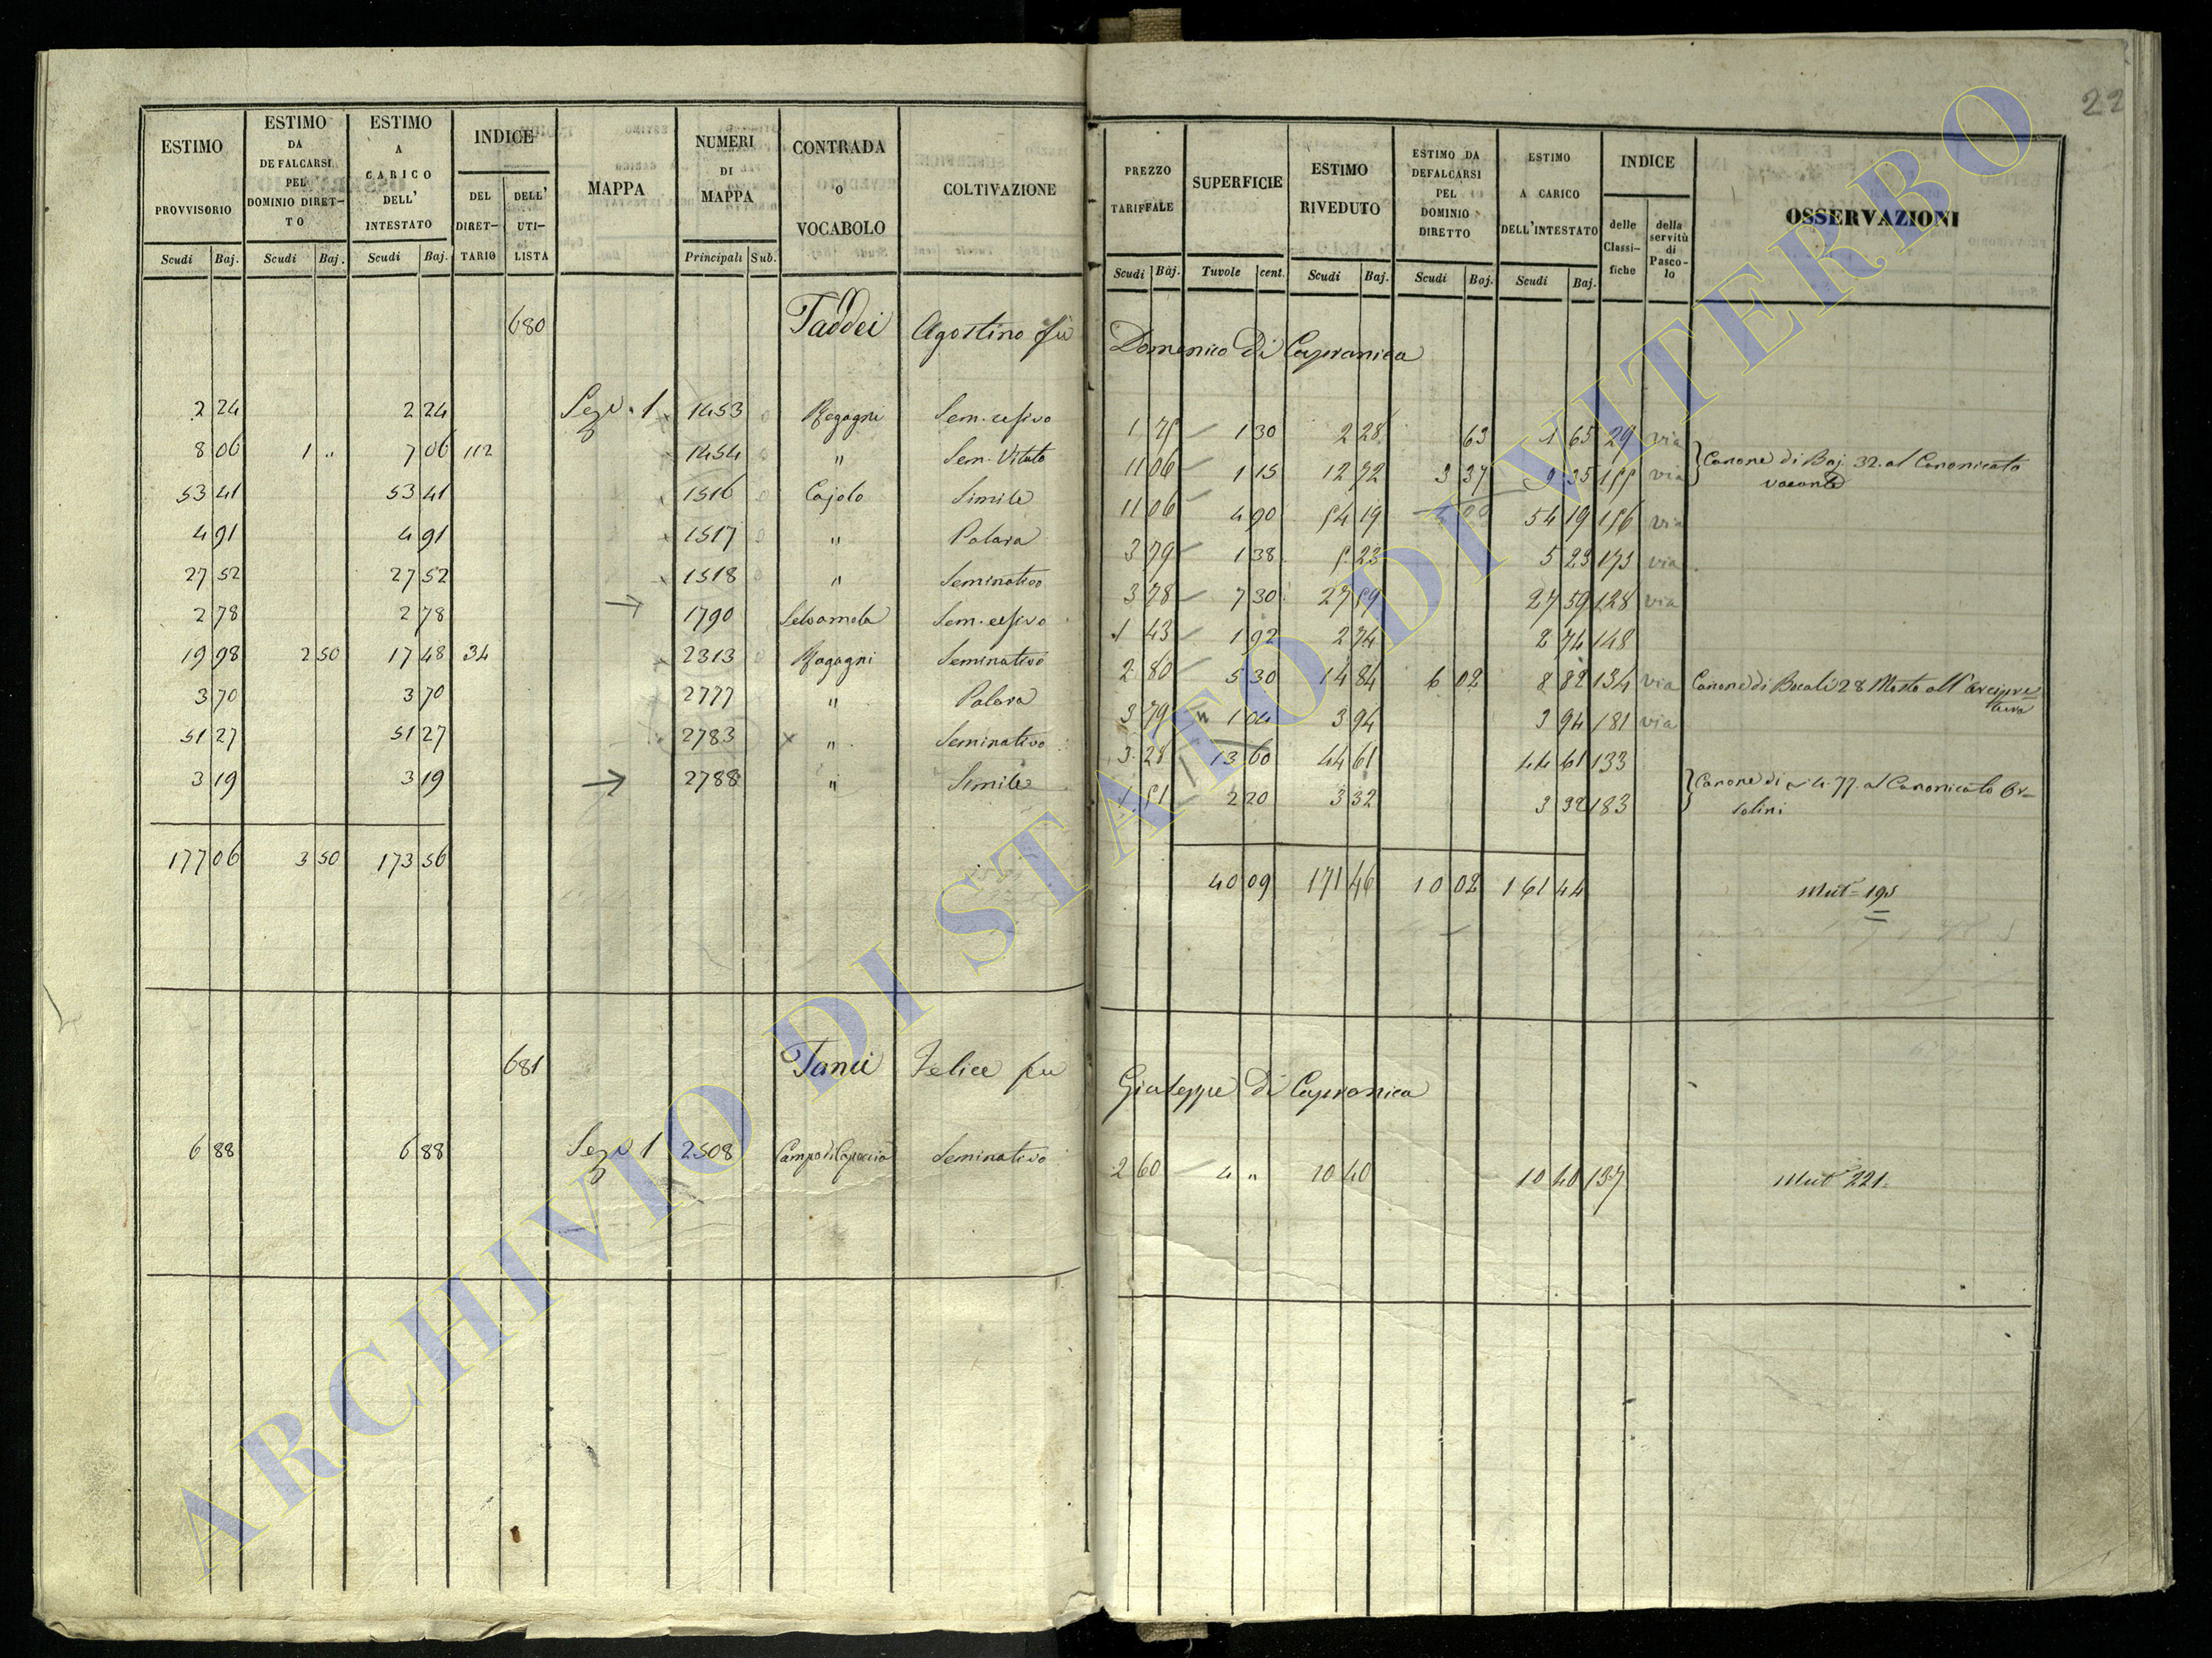 22
ESTIMO PROVVISORIO | ESTIMO DA DEFALCARSI PEL DOMINIO DIRETTO | ESTIMO A CARICO DELL' INTESTATO | INDICE DEL DIRETTARIO | DELL' UTILISTA | MAPPA | NUMERI DI MAPPA | CONTRADA O VOCABOLO | COLTIVAZIONE | PREZZO TARIFFALE | SUPERFICIE | ESTIMO RIVEDUTO | ESTIMO DA DEFALCARSI PEL DOMINIO DIRETTO | ESTIMO A CARICO DELL'INTESTATO | INDICE delle Classifiche | della servitù di Pascolo | OSSERVAZIONI
Scudi Baj. | Scudi Baj. | Scudi Baj. | Principali Sub. | Scudi Baj. | Tavole cent. | Scudi Baj. | Scudi Baj. | Scudi Baj.
680 Taddei Agostino fù Domenico di Capranica
2 24 | 2 24 | Sez.e 1 | 1453 | Sem. | 1 75 | 1 30 | 2 28 | 63 | 1 65 | 29 | via
8 06 | 1 " | 7 06 | 112 | 1454 | " | Sem. Vitato | 11 06 | 1 15 | 12 72 | 3 37 | 9 35 | 155 | via | Canone di Baj. 32. al Canonicato vacante
53 41 | 53 41 | 1516 | Cajolo | Simile | 11 06 | 4 90 | 54 19 | 54 19 | 156 | via
4 91 | 4 91 | 1517 | " | Palara | 3 79 | 1 38 | 5 23 | 5 23 | 175 | via
27 52 | 27 52 | 1518 | " | Seminativo | 3 78 | 7 30 | 27 59 | 27 59 | 128 | via
2 78 | 2 78 | 1790 | Sem. | 1 43 | 1 92 | 2 74 | 2 74 | 148
19 98 | 2 50 | 17 48 | 34 | 2313 | Ragagni | Seminativo | 2 80 | 5 30 | 14 84 | 6 02 | 8 82 | 134 | via | Canone di Bocali 28 Mosto all' arcipretura
3 70 | 3 70 | 2777 | " | Palara | 3 79 | 1 04 | 3 94 | 3 94 | 181 | via
51 27 | 51 27 | 2783 | " | Seminativo | 3 28 | 13 60 | 44 61 | 44 61 | 133
3 19 | 3 19 | 2788 | " | Simile | 1 51 | 2 20 | 3 32 | 3 32 | 183 | Canone di 4. 77. al Canonicato Orsolini
177 06 | 3 50 | 173 56 | 40 09 | 171 46 | 10 02 | 161 44 | Mut.e 195
681 Tanci Felice fu Giuseppe di Capranica
6 88 | 6 88 | Sez.e 1 | 2508 | Seminativo | 2 60 | 4 " | 10 40 | 10 40 | 137 | Mut.e 221.
ARCHIVIO DI STATO DI VITERBO